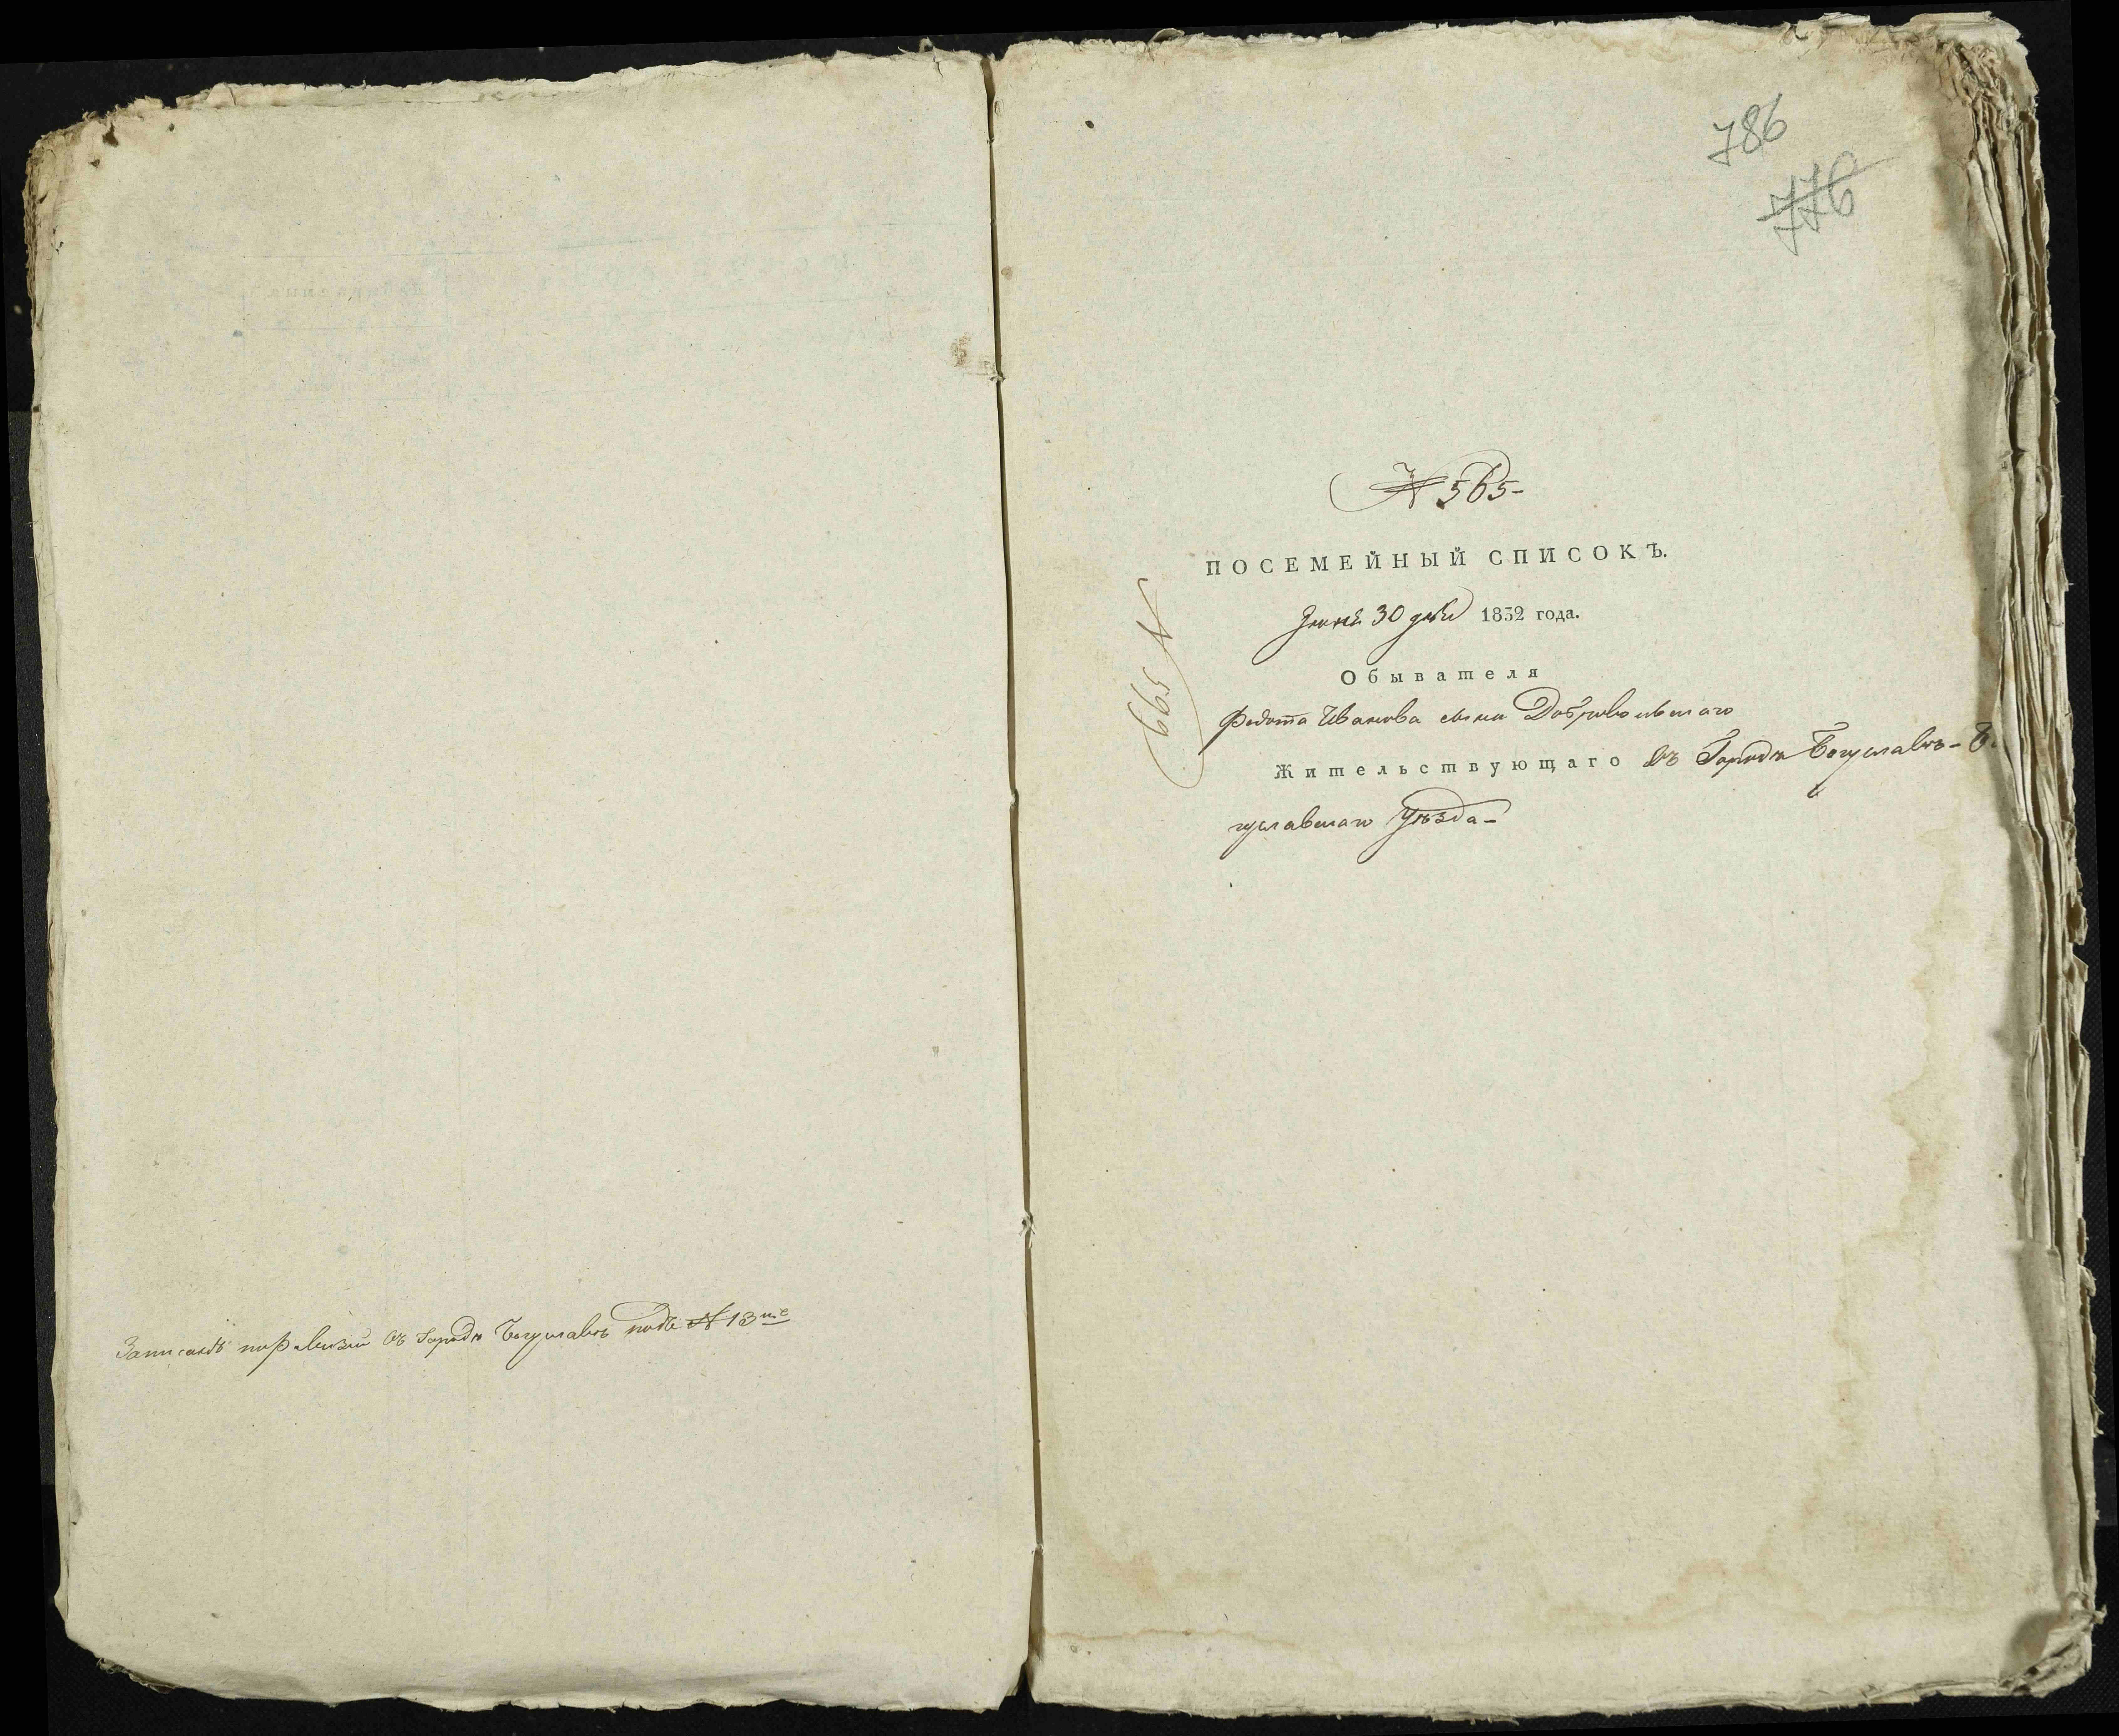 Записанъ по ревизіи въ городѣ Богуславѣ подъ № 13мъ
786
776
№ 565-
ПОСЕМЕЙНЫЙ СПИСОКЪ.
Іюня 30 дня 1832 года.
Обывателя
Федота Иванова сына Добровольскаго
Жительствующаго въ Городѣ Богуславѣ- Бо
гуславскаго Уѣзда-
№ 599